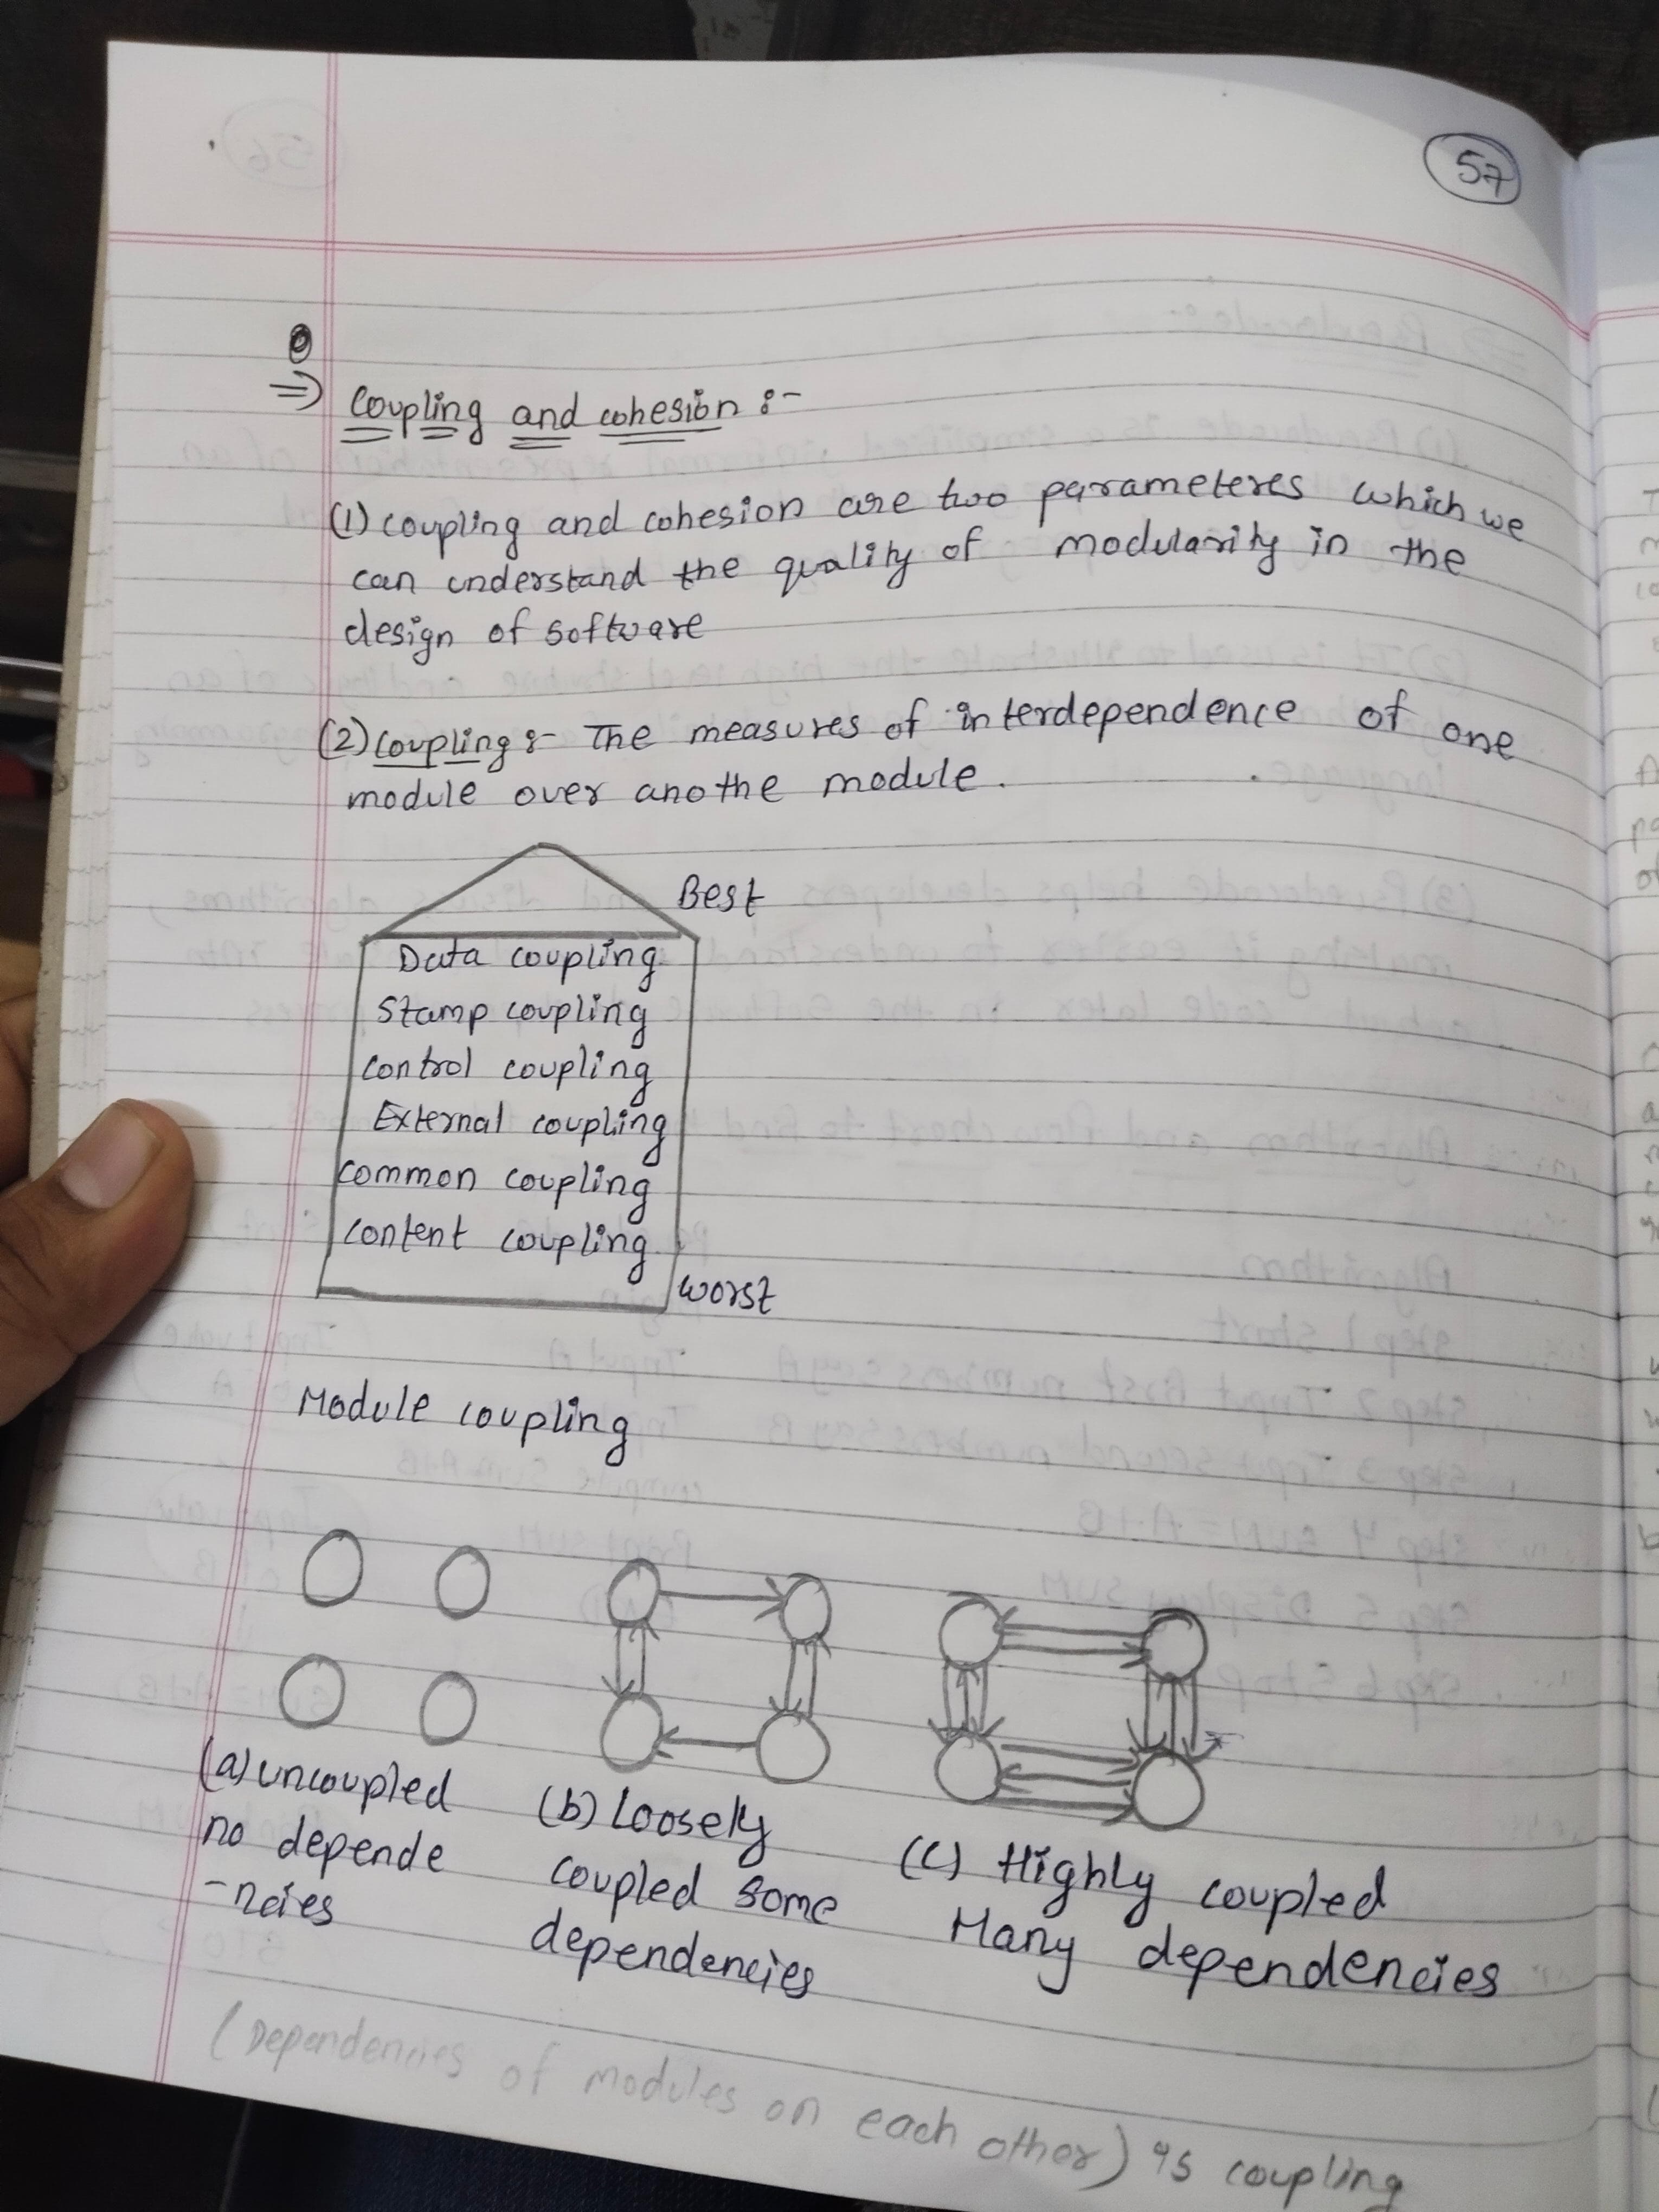 57
⇒ Coupling and cohesion :-
(1) coupling and cohesion are two parameteres which we
can understand the quality of modularity in the
design of software
(2) coupling :- The measures of interdependence of one
module over anothe module.
Best
Data coupling
Stamp coupling
control coupling
External coupling
common coupling
content coupling
worst
Module coupling
(a) uncoupled
no depende
-ncies
(b) Loosely
coupled some
dependencies
(c) Highly coupled
Many dependencies
(Dependencies of modules on each other) is coupling